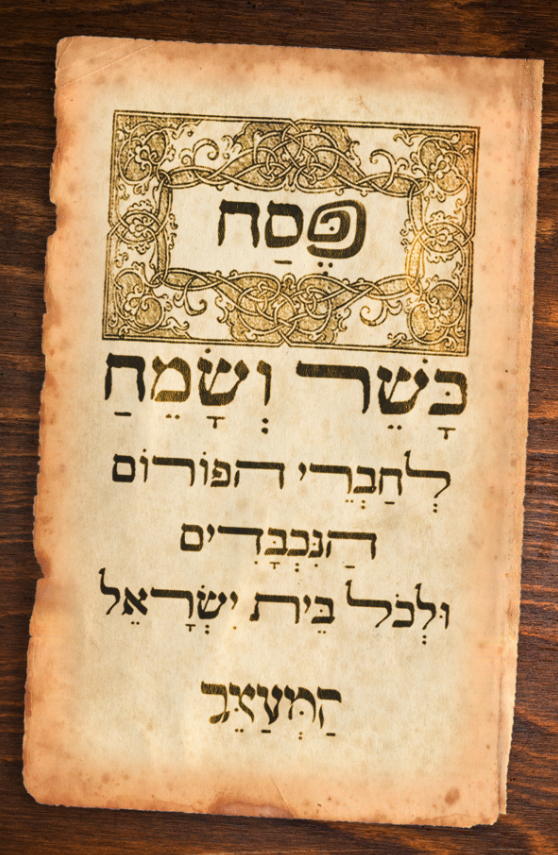 פֶּסַח
כָּשֵׁר וְשָׂמֵחַ
לְחַבְרֵי הפוֹרוֹם
הַנִּכְבָּדִים
וּלְכֹל בֵּית יִשְׂרָאֵל
הַמְּעַצֵּב